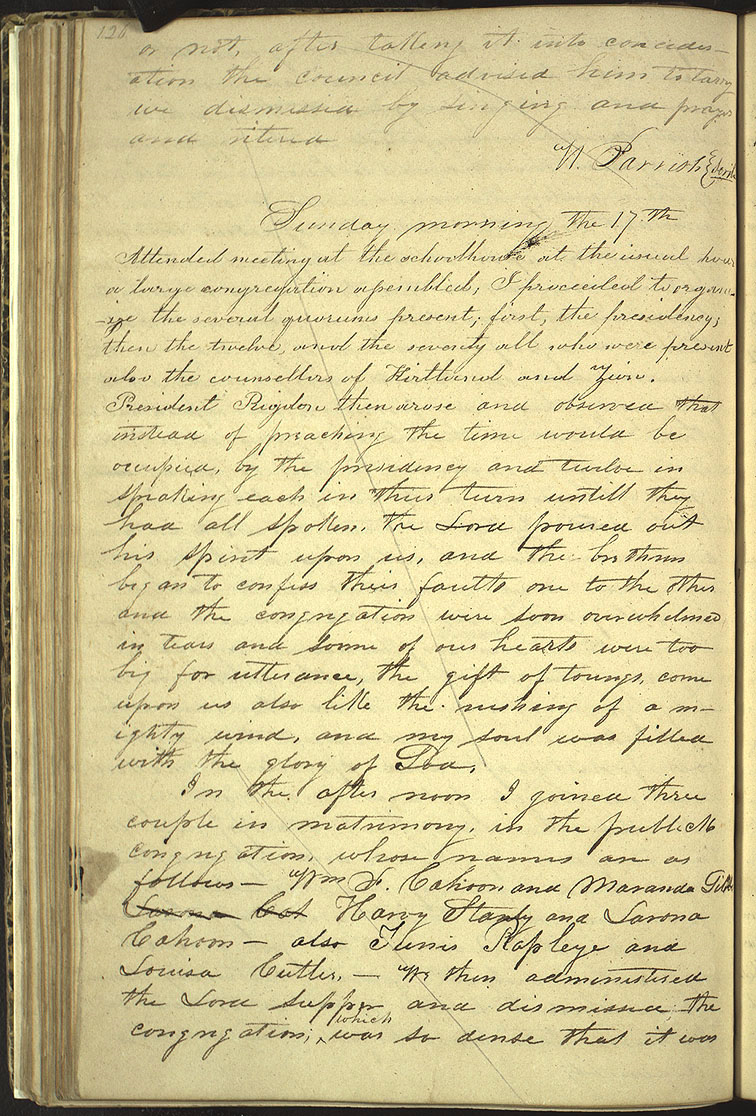 126
or not, after talking it into concider–
ation the council advised him to tarry
we dismissed by singing and prayer
and retired
W. Parrish
Sunday morning the 17th
Attended meeting at the schoolhouse at the usual hour
a large congregation assembled; I proceeded to organi–
–ze the several quorums present; first, the presidency;
then the twelve, and the seventy all who were present
also the counsellors of Kirtland and Zion.
President Rigdon then arose and observed that
instead of preaching the time would be
occupied, by the presidency and twelve in
speaking each in their turn untill they
had all spoken. the Lord poured out
his spirit upon us, and the brethren
began to confess their faults one to the other
and the congregation were soon overwhelmed
in tears and some of our hearts were too
big for utterance, the gift of toungs, come
upon us also like the rushing of a m–
ighty wind, and my soul was filled
with the glory of God.
In the after noon I joined three
couple in matrimony, in the publick
congregation, whose names are as
follows— Wm F. Cahoon and Maranda
Larona Harvy Stanly and Larona
Cahoon— also Tunis Rapleye and
Louisa Cutler,— We then administered
the Lord supper and dismissed the
congregation; which was so dense that it was